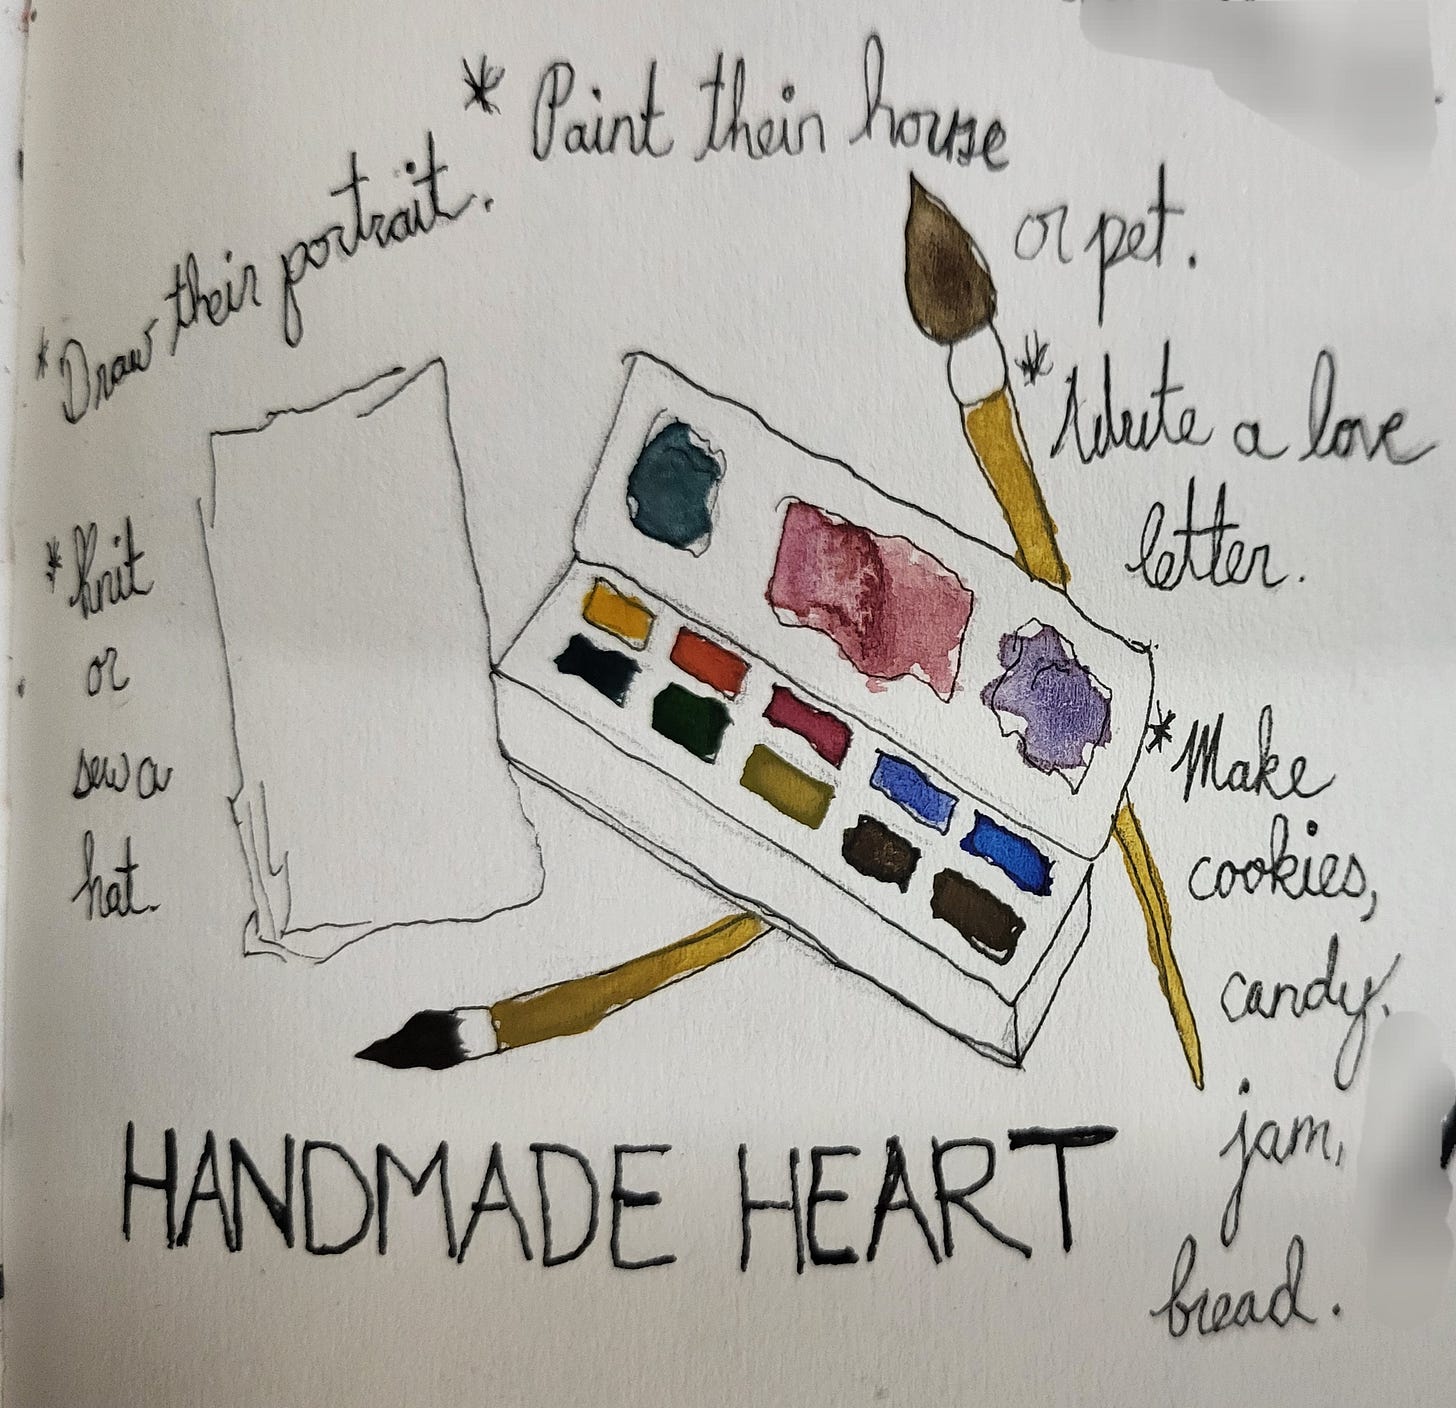 * Paint their house
or pet.
* Draw their portrait.
* Write a love
letter.
* Knit
or
sew a
hat.
* Make
cookies,
candy,
jam,
bread.
HANDMADE HEART